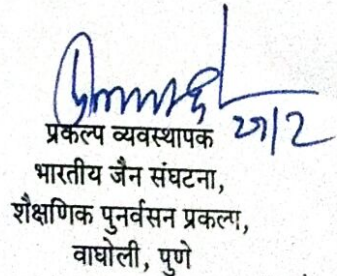 प्रकल्प व्यवस्थापक
भारतीय जैन संघटना,
शैक्षणिक पुनर्वसन प्रकल्प,
वाघोली, पुणे